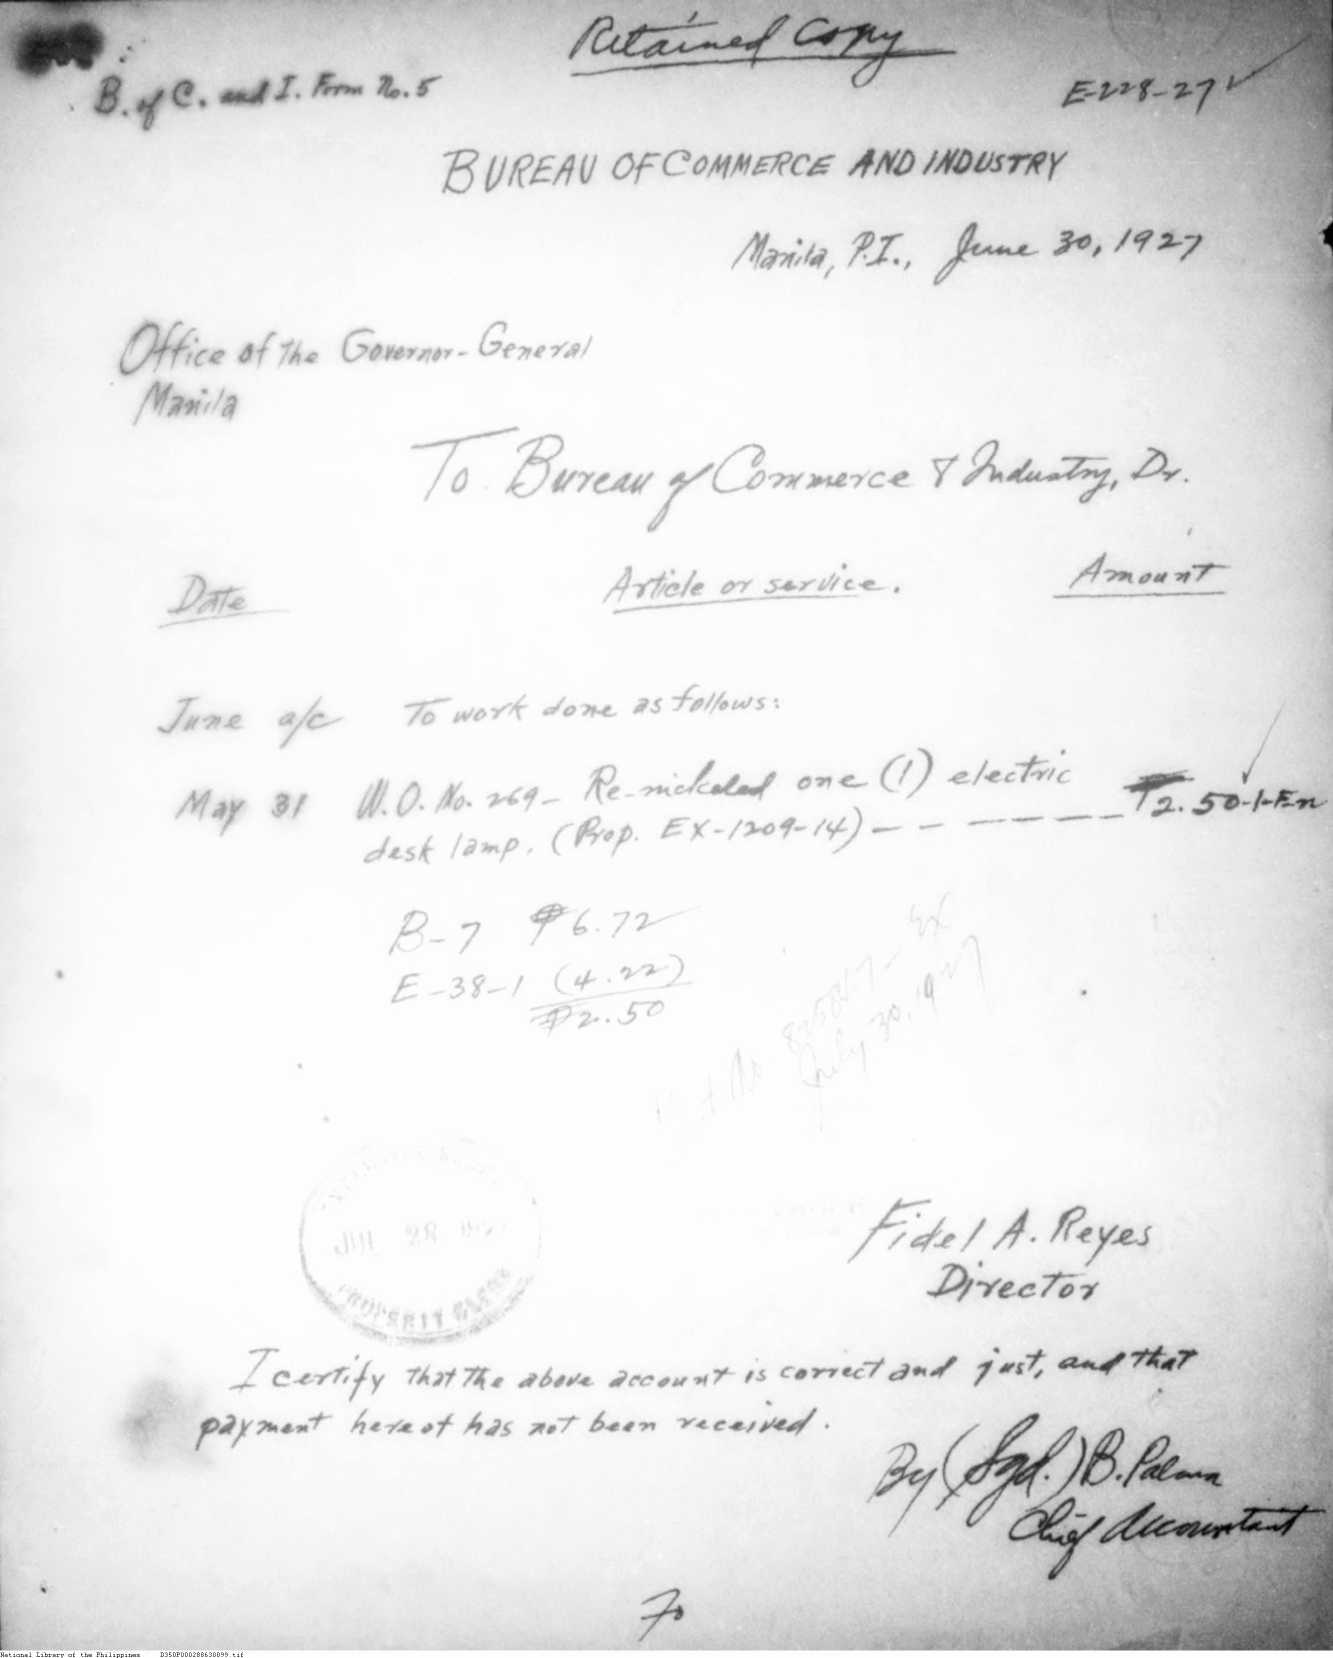 Retained Copy
B. of C. and I. Form No. 5
E-228-27
BUREAU OF COMMERCE AND INDUSTRY
Manila, P.I., June 30, 1927
Office of the Governor-General
Manila
To Bureau of Commerce & Industry, Dr.
Date Article or service. Amount
June a/c To work done as follows:
May 31 W.O. No. 269- Re-nickeled one (1) electric
desk lamp. (Prop. EX-1209-14) - - - - - - - - ₱2.50-1-F-n
B-7 ₱6.72
E-38-1 (4.22)
₱2.50
July 30, 1927
JUL 28
PROPERTY CLERK
Fidel A. Reyes
Director
I certify that the above account is correct and just, and that
payment hereof has not been received.
By (Sgd.) B. Palma
Chief Accountant
70
National Library of the Philippines D350P000288630899.tif